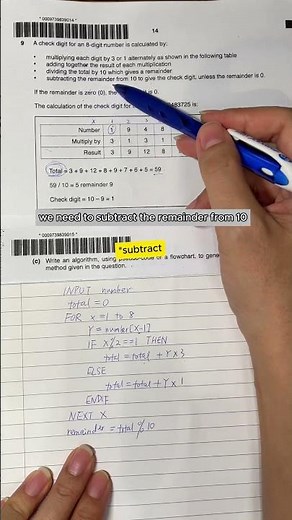 * 0009739839014 *
14
9 A check digit for an 8-digit number is calculated by:
• multiplying each digit by 3 or 1 alternately as shown in the following table
• adding together the result of each multiplication
• dividing the total by 10 which gives a remainder
• subtracting the remainder from 10 to give the check digit, unless the remainder is 0.
If the remainder is zero (0), the
is 0.
The calculation of the check digit for
483725 is:
Number 1 9 4 8
Multiply by 3 1 3 1
Result 3 9 12 8
Total = 3 + 9 + 12 + 8 + 9 + 7 + 6 + 5 = 59
59 / 10 = 5 remainder 9
Check digit = 10 – 9 = 1
we need to subtract the remainder from 10
* 0009739839015 *
*subtract
(c) Write an algorithm, using
or a flowchart, to gene
method given in the question.
INPUT number
total = 0
FOR x = 1 to 8
Y = number[x-1]
IF x%2 == 1 THEN
total = total + Y x 3
ELSE
total = total + Y x 1
ENDIF
NEXT X
remainder = total % 10